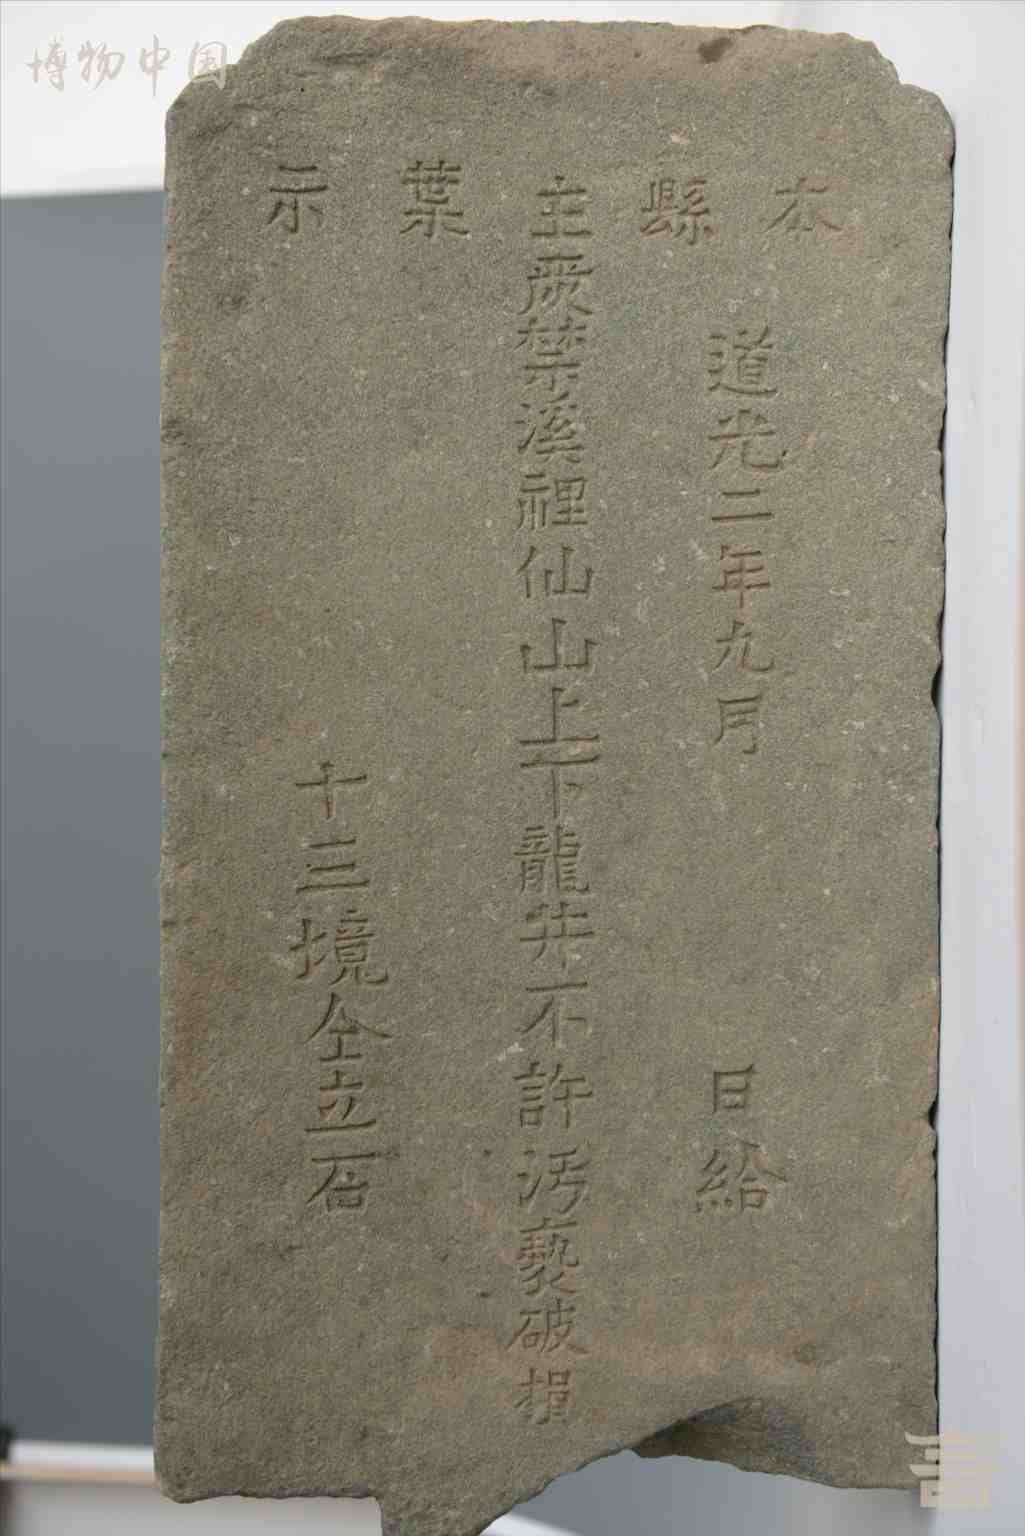 本縣主葉示
道光二年九月　日給
嚴禁溪裡仙山上下龍井不許污褻破損
十三境仝立石
博物中国